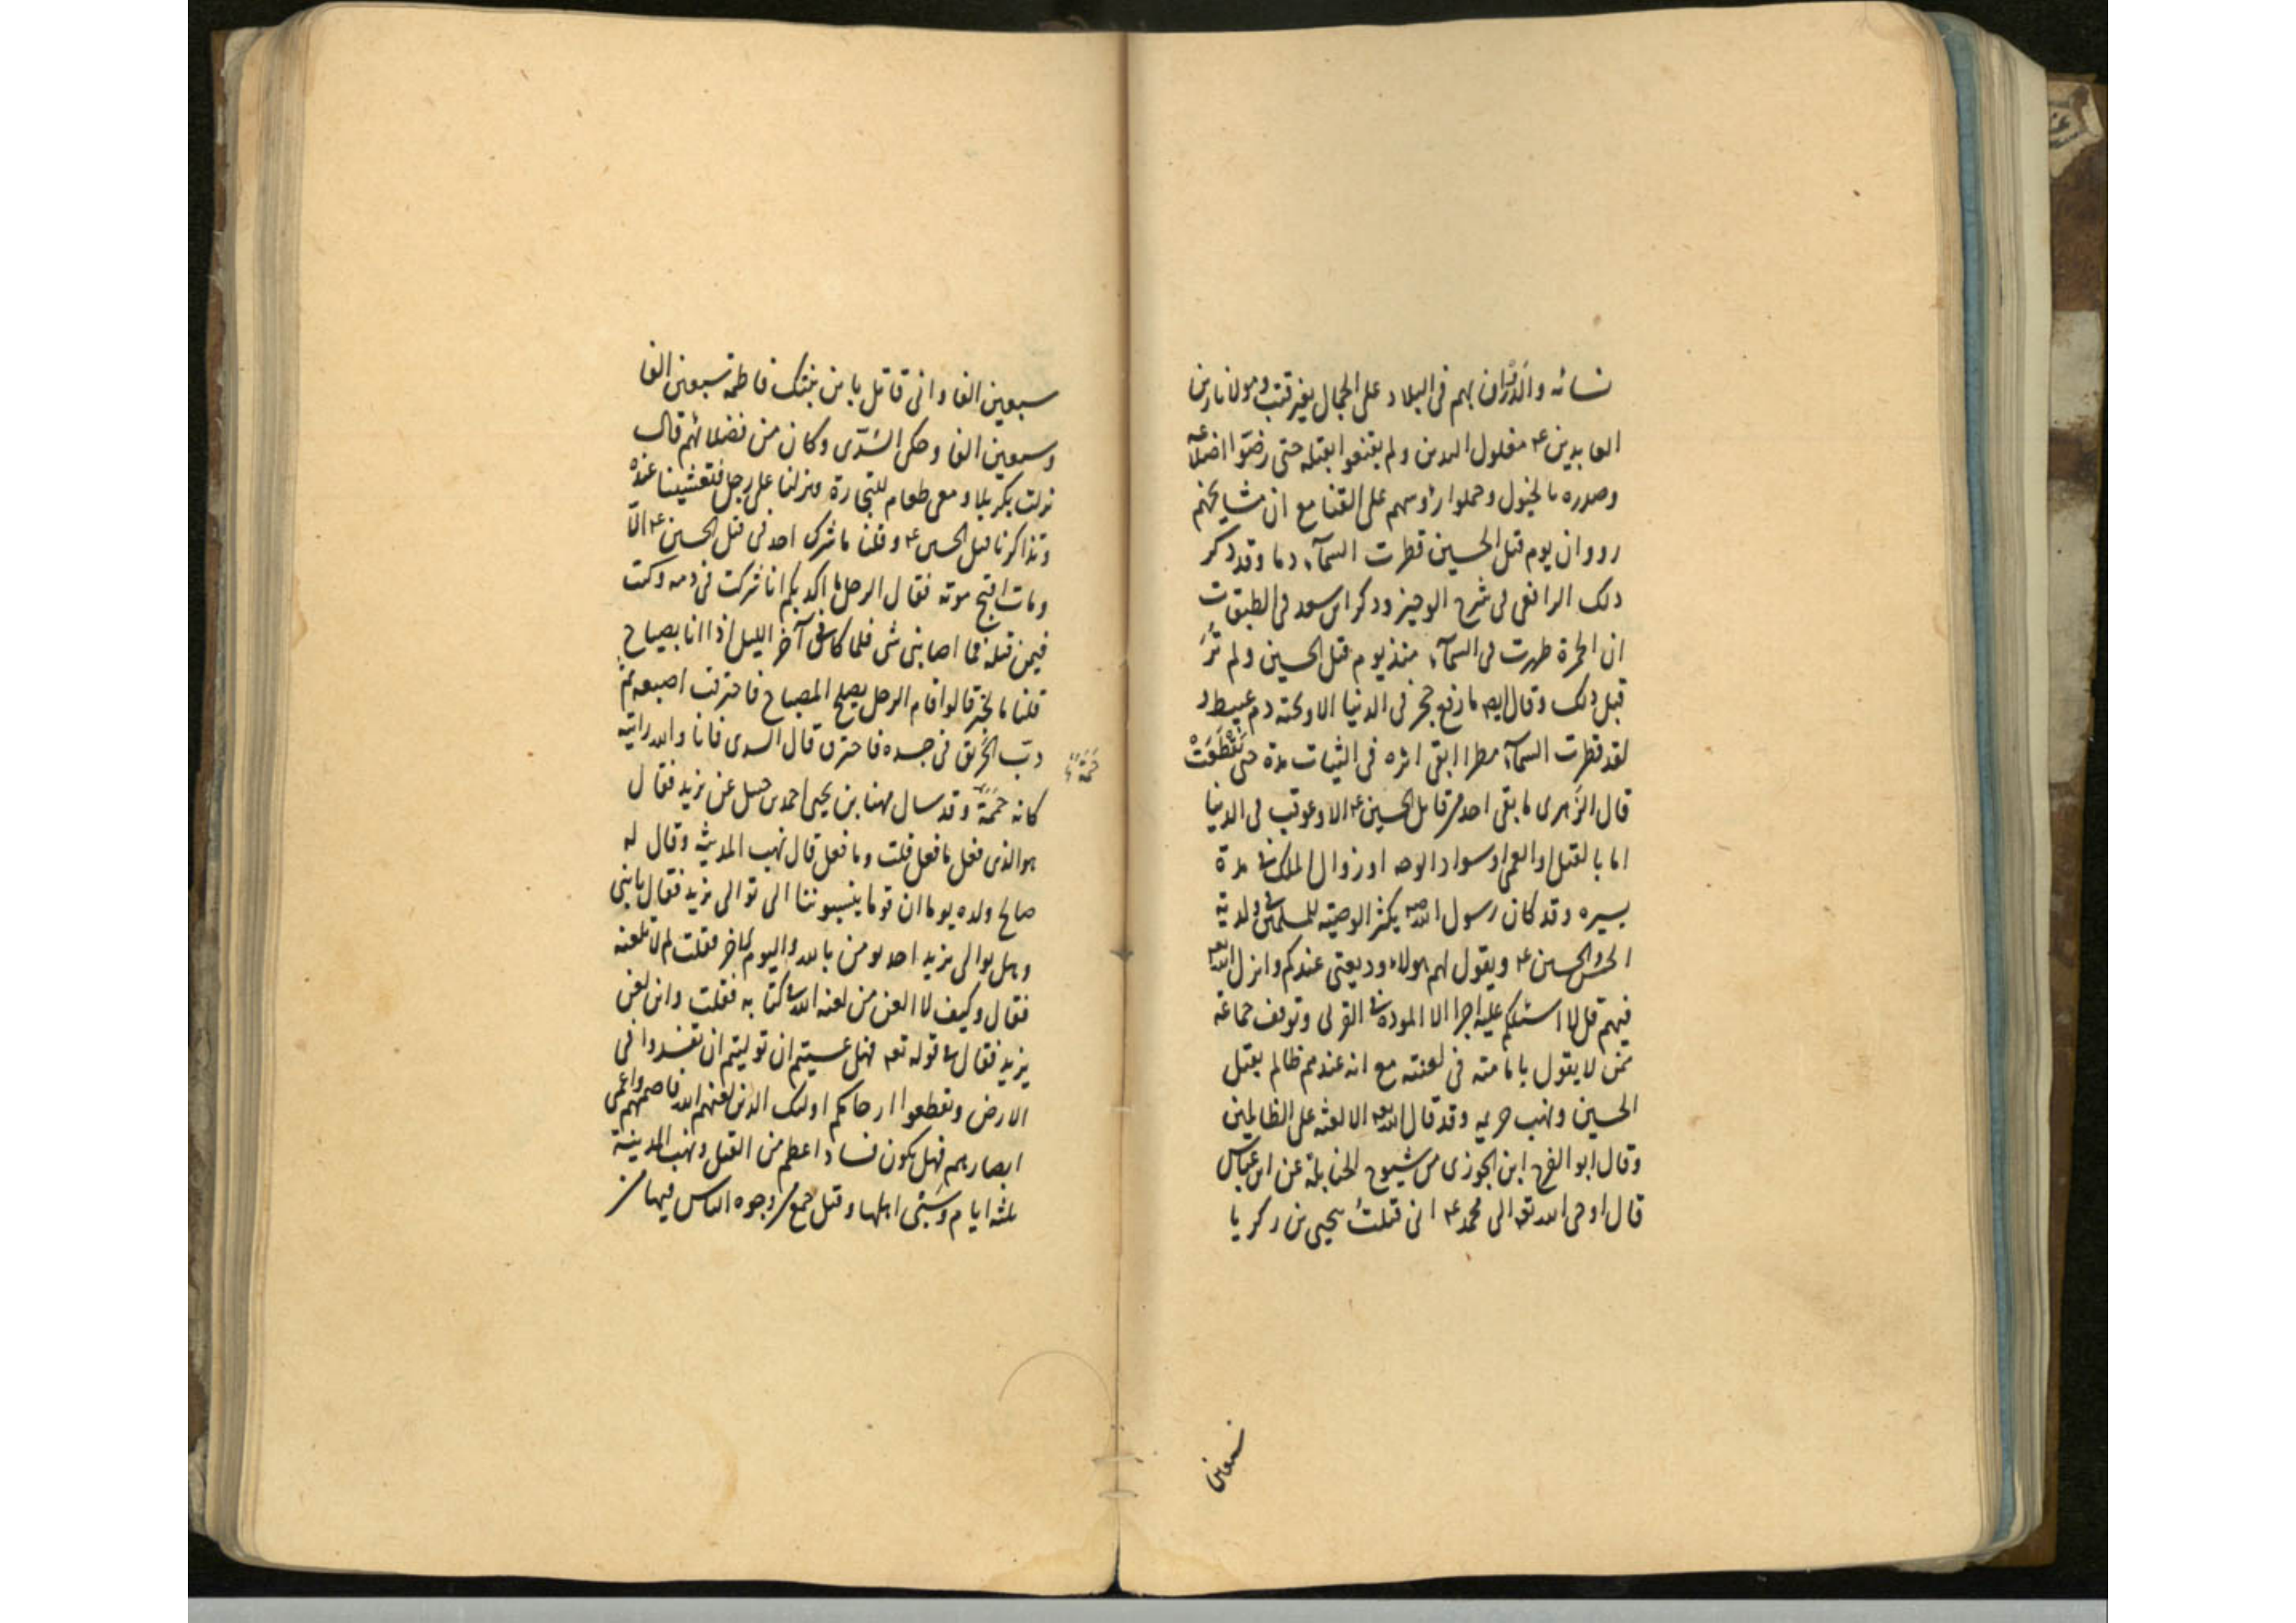 نسائه والدَّوَران بهم فى البلاد على الجمال بغير قتب ومولانا زين
العابدين ع مغلول اليدين ولم يقنعوا بقتله حتى رضّوا اضلاعه
وصدره بالخيول وحملوا رؤسهم على القنا مع ان مشايخهم
رووا ان يوم قتل الحسين قطرت السمآء دما وقد ذكر
ذلك الرافعى فى شرح الوجيز وذكر ابن سعد فى الطبقات
ان الحمرة ظهرت فى السمآء منذ يوم قتل الحسين ولم تُرَ
قبل ذلك وقال ايضا ما رفع حجر فى الدنيا الا وتحته دم عبيط و
لقد قطرت السمآء مطرا ابقى اثره فى الثياب مدة حتى تَقَطَّعَتْ
قال الزُّهرى ما بقى احد من قاتل الحسين ع الا وعوقب فى الدنيا
اما بالقتل او العمى او سواد الوجه او زوال الملك فى مدة
يسيره وقد كان رسول الله ص يكثر الوصية للمسلمين فى ولديه
الحسن والحسين ع ويقول لهم هولاء وديعتى عندكم وانزل الله تع
فيهم قل لا اسئلكم عليه اجرا الا المودة فى القربى وتوقف جماعة
ممن لا يقول بامامته فى لعنته مع انه عندهم ظالم بقتل
الحسين ونهب حريمه وقد قال الله تع الا لعنة على الظالمين
وقال ابو الفرج ابن الجوزى من شيوخ الحنابلة عن ابن عباس
قال اوحى الله تع الى محمد ع انى قتلتُ بيحيى بن زكريا
سبعين
سبعين الفا وانى قاتل بابن بنتك فاطمة سبعين الفا
وسبعين الفا وحكى السُّدّى وكان من فضلائهم قال
نزلت بكربلا ومعى طعام للتجارة ونزلنا على رجل فتعشينا عنده
وتذاكرنا قتل الحسين ع وقلنا ما شرك احد فى قتل الحسين ع الّا
ومات اقبح موته فقال الرجل ما اكذبكم انا شركت فى دمه وكنت
فيمن قتله فما اصابنى شى فلما كان فى آخر الليل اذا انا بصياح
قلنا ما الخبر قالوا قام الرجل يصلح المصباح فاحترقت اصبعه ثمّ
دبّ الحَرق فى جسده فاحترق قال السدى فانا والله رايته
حُمَمَة
كانه حُمَمَةٌ وقد سال مهنا بن يحيى احمد بن حنبل عن يزيد فقال
هو الذى فعل ما فعل قلت وما فعل قال نهب المدينة وقال له
صالح ولده يوما ان قوما ينسبوننا الى توالى يزيد فقال يا بنى
وهل يوالى يزيد احد يومن بالله واليوم الاخر فقلت لم لا تلعنه
فقال وكيف لا العن من لعنه الله فى كتابه فقلت واين لعن
يزيد فقال فى قوله تعه فهل عسيتم ان توليتم ان تفسدوا فى
الارض وتقطعوا ارحامكم اولئك الذين لعنهم الله فاصمهم واعمى
ابصارهم فهل يكون فساد اعظم من القتل ونهب المدينة
ثلثه ايام وسَبْى اهلها وقتل جمع من وجوه الناس فيها من